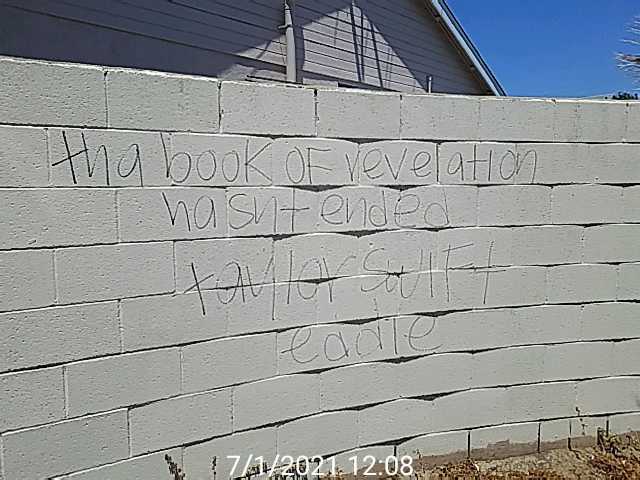 tha book oF revelation
hasnt ended
taylor swIFt
eddie
7/1/2021 12:08